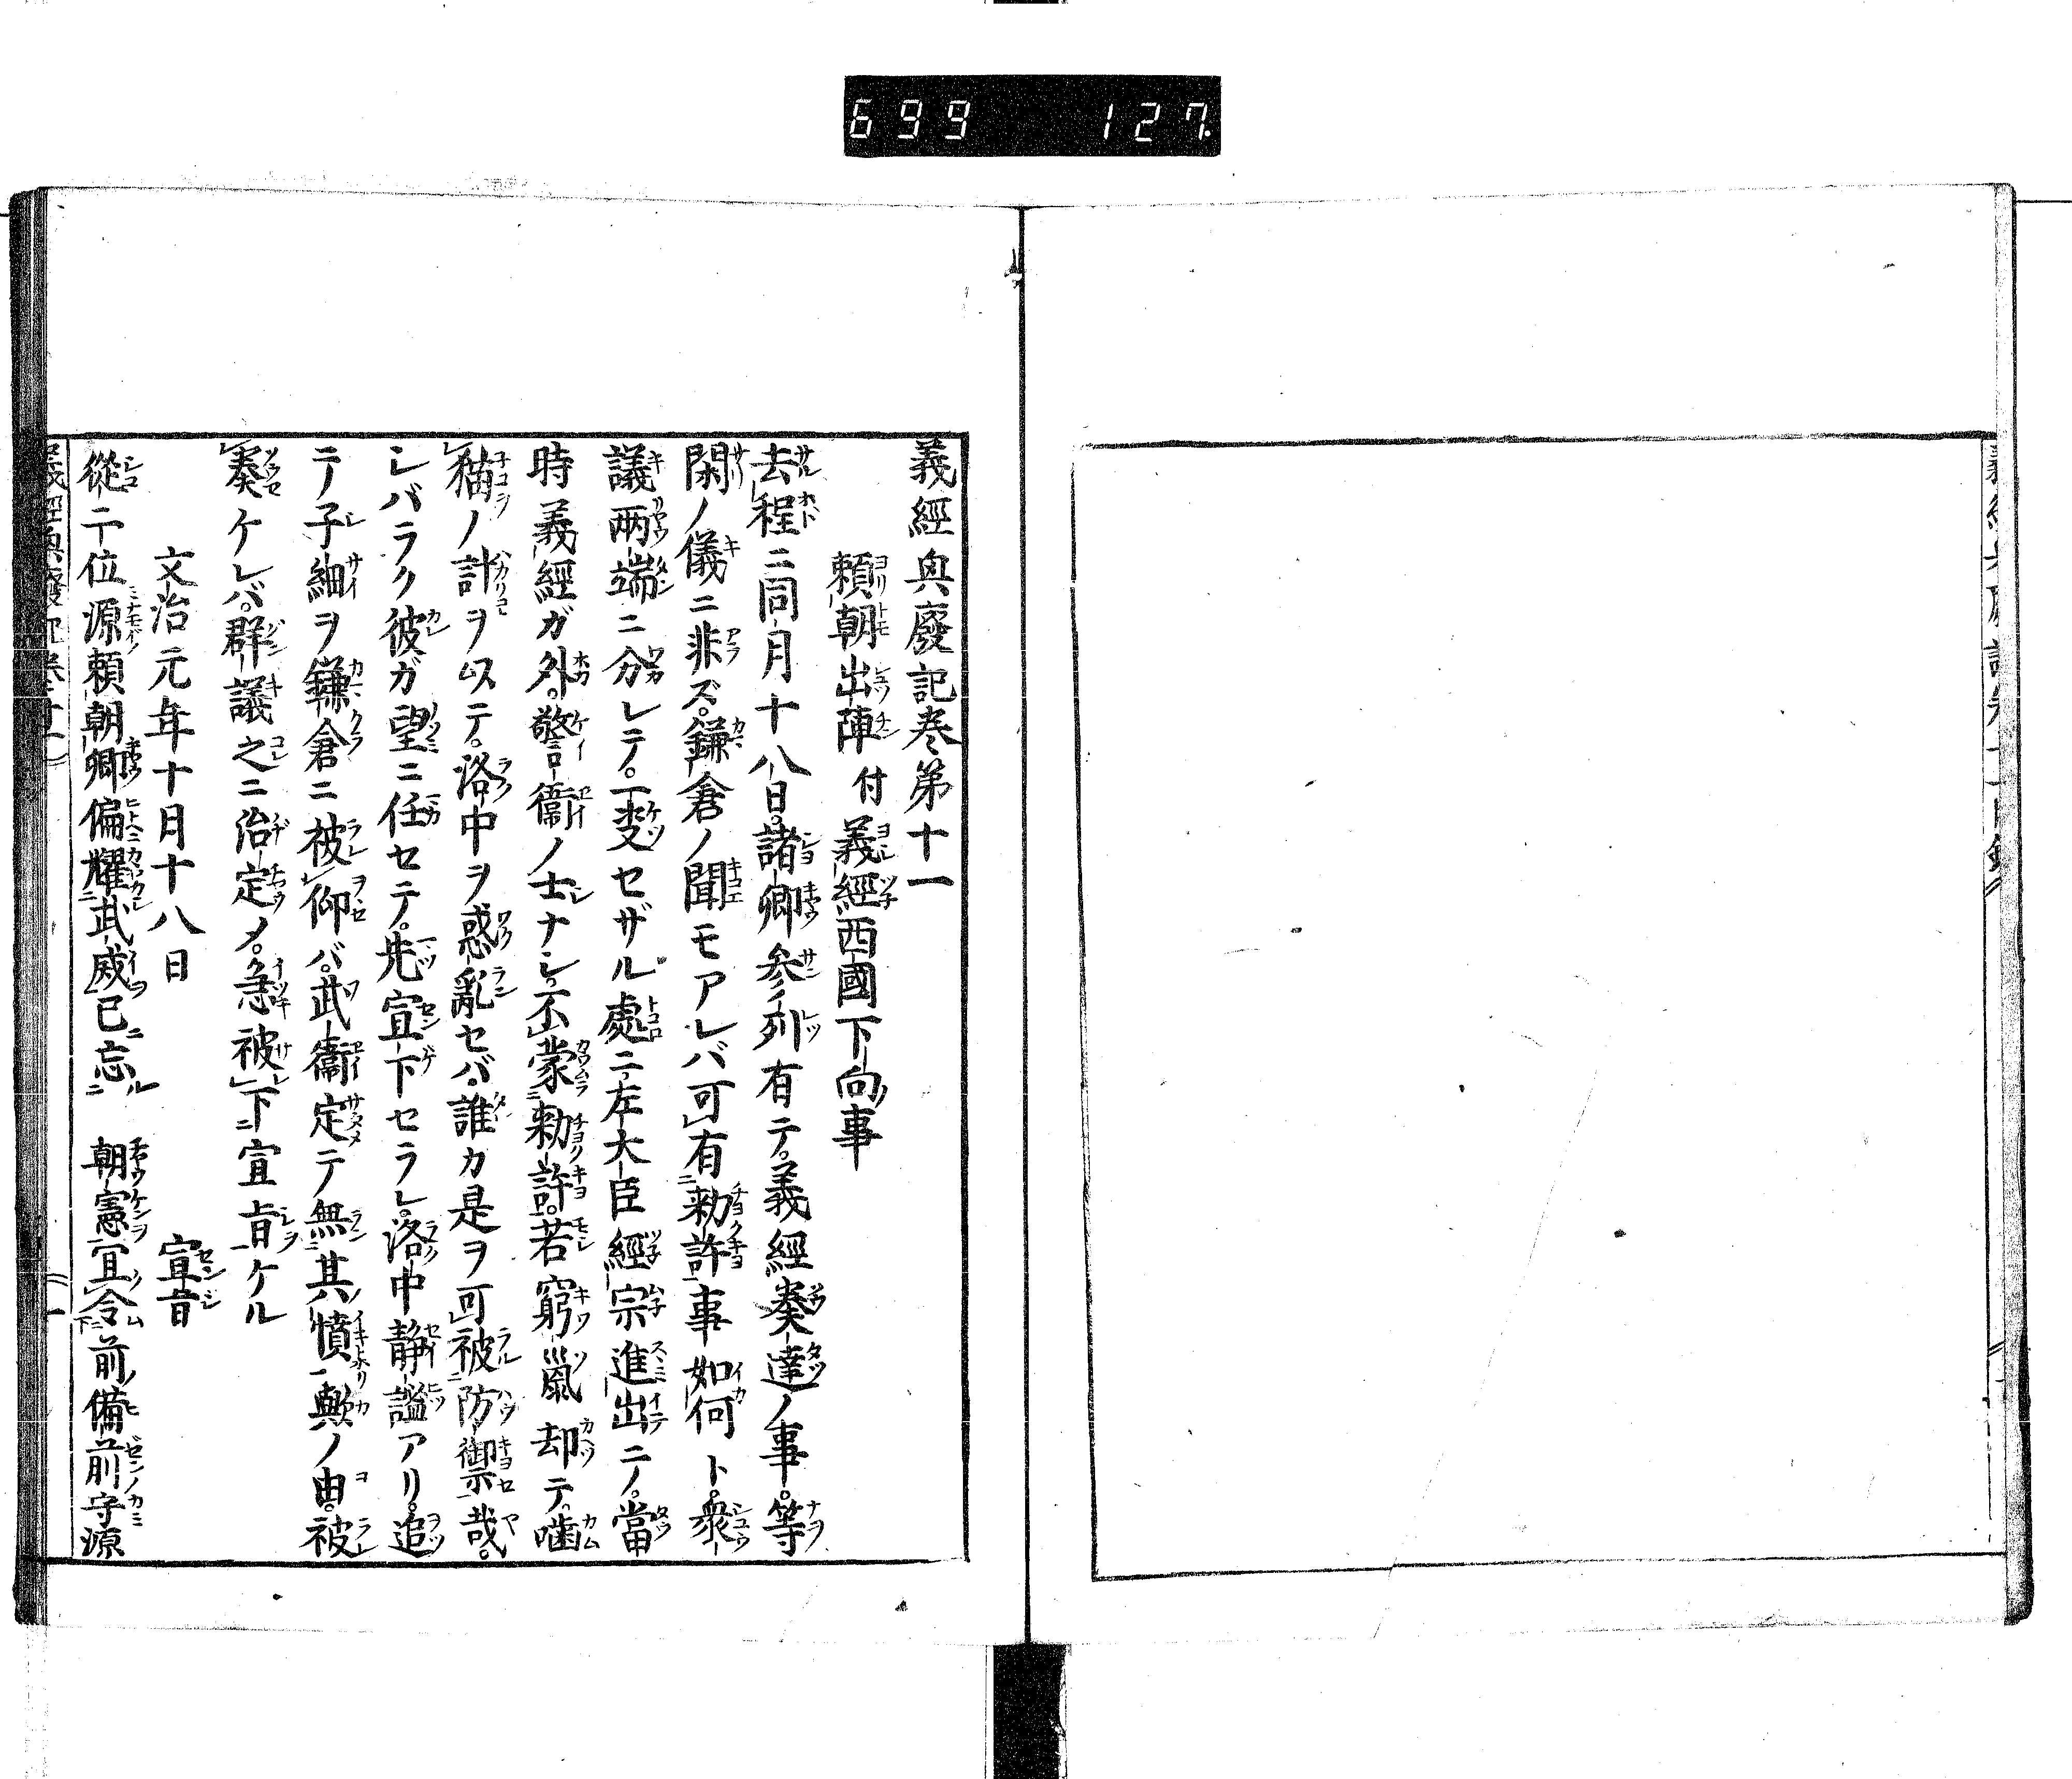 699 127
義經興廢記卷第十一
頼朝出陣付義經西國下向事
去程ニ同月十八日。諸卿參列有テ。義經奏達ノ事。等
閑ノ儀ニ非ズ。鎌倉ノ聞モアレバ可有勅許事如何ト。衆
議兩端ニ分レテ。一决セザル處ニ左大臣經宗進出ニテ。當
時義經ガ外。警衞ノ士ナシ。不蒙勅許。若窮鼠却テ。嚙
猫ノ計ヲ以テ。洛中ヲ惑亂セバ。誰カ是ヲ可被防禦哉。
シバラク彼ガ望ニ任セテ。先宣下セラレ。洛中靜謐アリ。追
テ子細ヲ鎌倉ニ被仰バ。武衞定テ無其憤歟ノ由。被
奏ケレバ。群議之ニ治定メ。急被下宣旨ケル
文治元年十月十八日 宣旨
從二位源頼朝卿偏耀武威已忘 朝憲宜令前備前守源